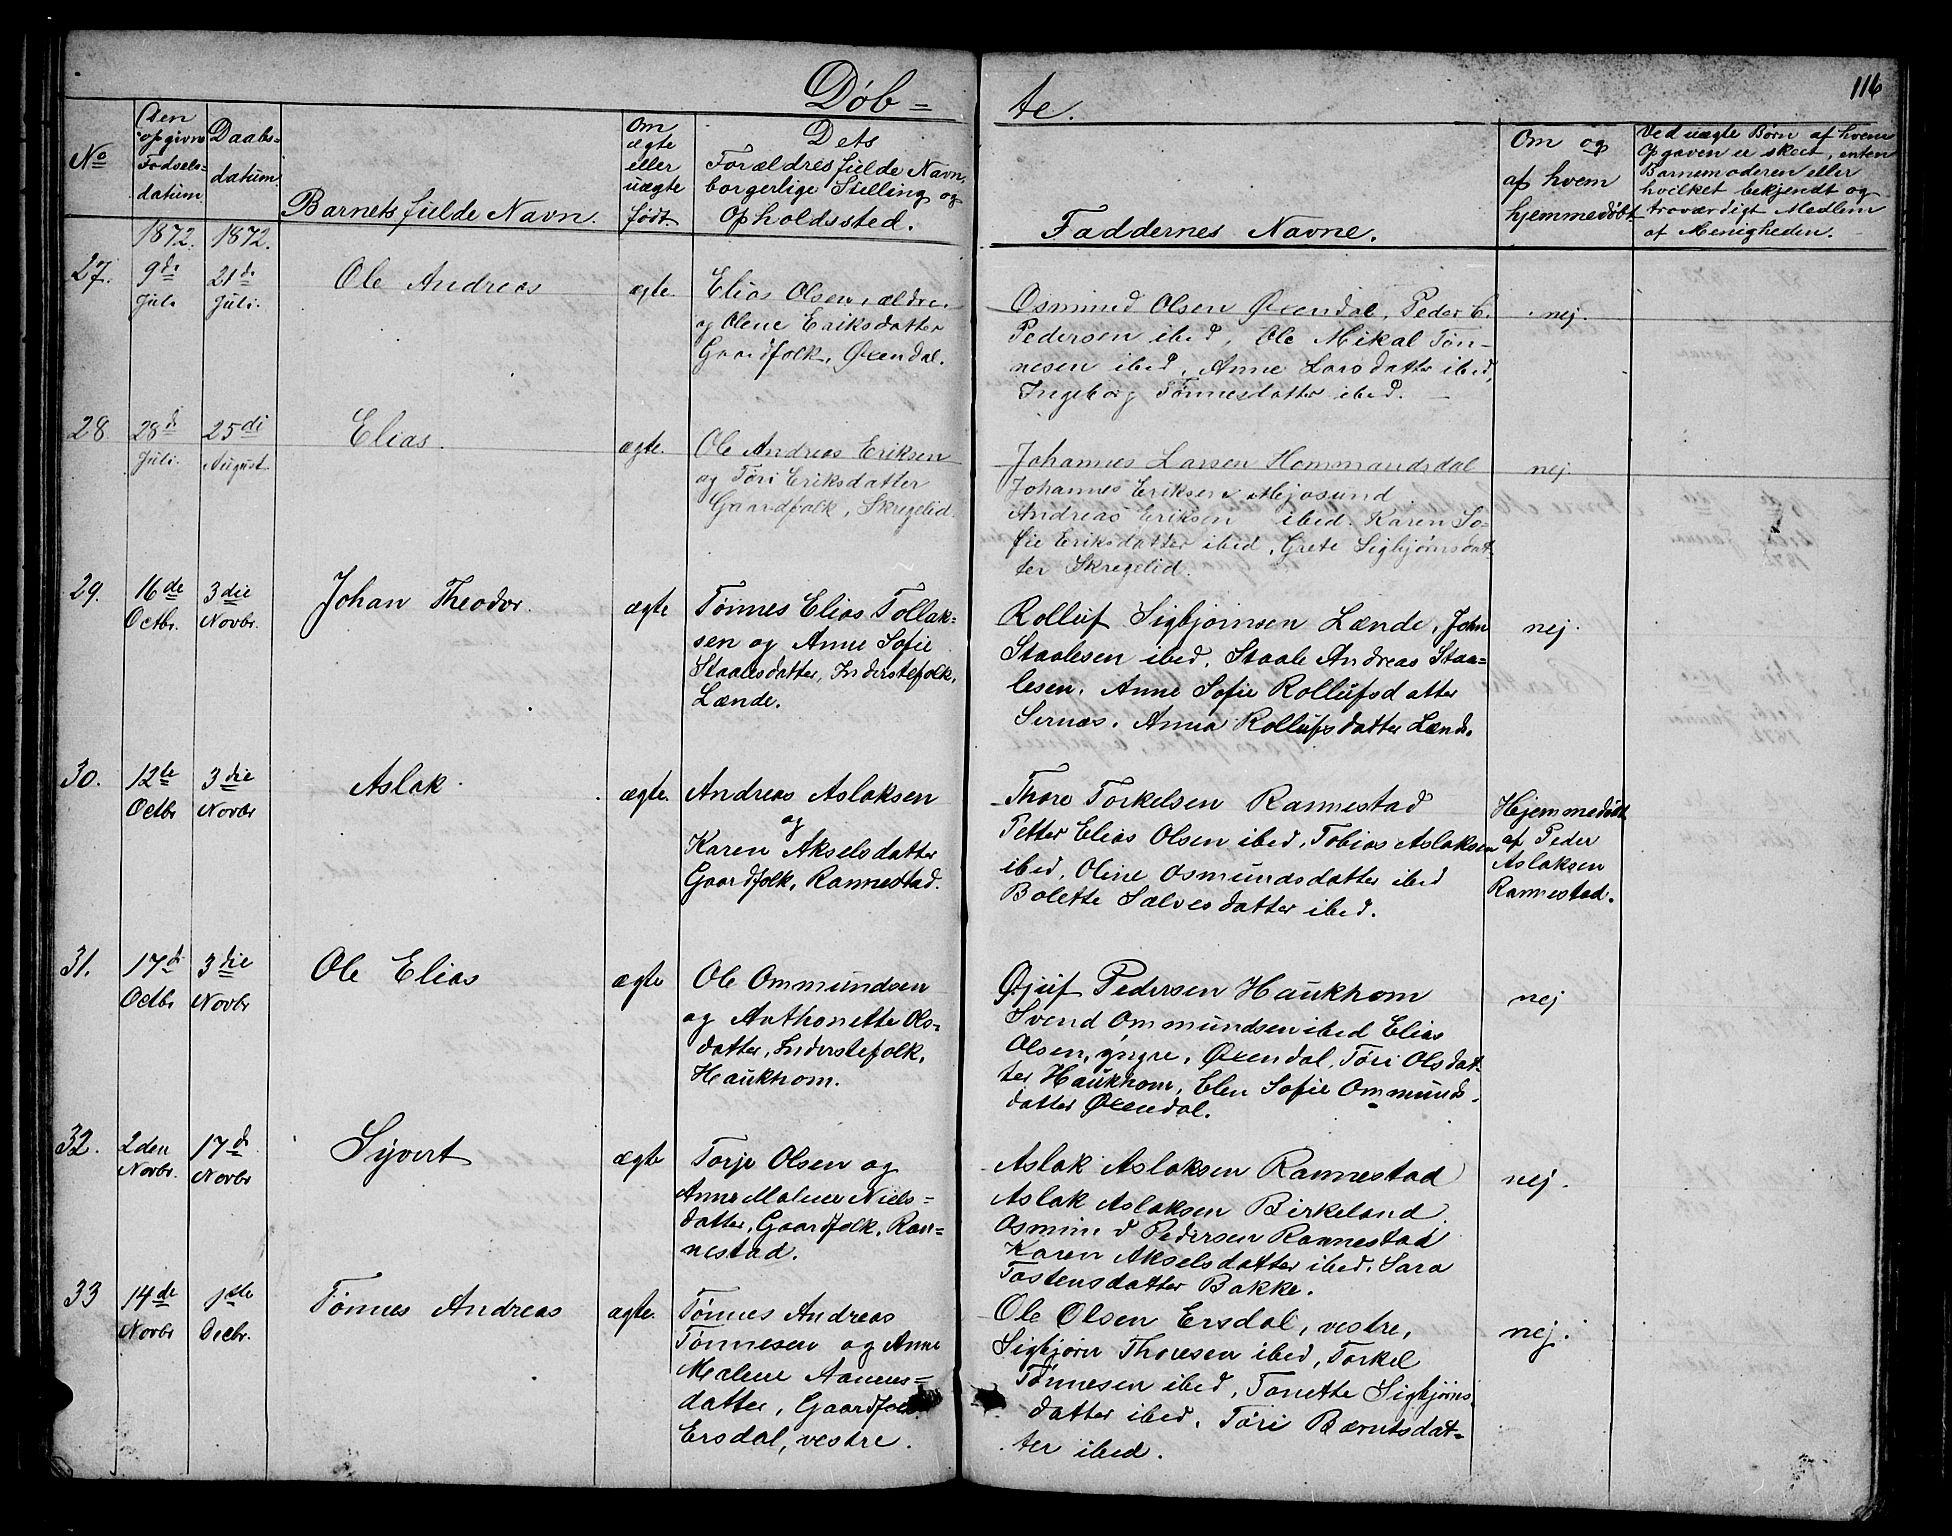 116
Døb= te.
No
Den opgivne Fødsels-datum
Daabs-datum.
Barnets fulde Navn.
Om ægte eller uægte født.
Dets Forældres fulde Navn, borgerlige Stilling og Opholdssted.
Faddernes Navne.
Om og af hvem hjemmedøbt
Ved uægte Børn af hvem Opgaven er skeet, enten Barnemoderen eller hvilket bekjendt og troværdigt Medlem af Menigheden.
1872. 1872.
27. 9de Juli 21de Juli.
Ole Andreas
ægte.
Elias Olsen, ældre.
og Olene Eriksdatter
Gaardfolk, Øxendal.
Osmund Olsen Øxendal, Peder C.
Pedersen ibid, Ole Mikal Tøn-
nesen ibid, Anne Larsdatter ibid,
Ingeborg Tønnesdatter ibid.
nej.
28 28de Juli. 25di August
Elias.
ægte.
Ole Andreas Eriksen
og Tøri Eriksdatter
Gaardfolk, Skregelid.
Johannes Larsen Hommundsdal
Johannes Eriksen Mjosund
Andreas Eriksen ibid. Karen So-
fie Eriksdatter ibid, Grete Sigbjørnsdat
ter Skregelid.
nej
29. 16de Octbr. 3die Novbr.
Johan Theodor.
ægte
Tønnes Elias Tollak=
sen og Anne Sofie
Staalesdatter, Inderstefolk,
Lænde.
Rolluf Sigbjørnsen Lænde, John
Staalesen ibid. Staale Andreas Staa=
lesen. Anne Sofie Rollufsdatter
Sernæs. Anna Rollufsdatter Lænde.
nej.
30. 12te Octbr 3die Novbr
Aslak.
ægte.
Andreas Aslaksen
og
Karen Akselsdatter
Gaardfolk, Rannestad.
Thore Torkelsen Rannestad
Petter Elias Olsen ibid, Tobias Aslaksen
ibid, Oline Osmundsdatter ibid
Bolette Salvesdatter ibid.
Hjemmedøbt
af Peder
Aslaksen
Rannestad.
31. 17de Octbr 3die Novbr
Ole Elias
ægte
Ole Ommundsen
og Anthonette Ols=
datter, Inderstefolk,
Haukhom.
Øjuf Pedersen Haukhom
Svend Ommundsen ibid Elias
Olsen, yngre, Øxendal, Tøri Olsdat
ter Haukhom, Elen Sofie Ommunds-
datter Øxendal.
nej
32. 2den Novbr. 17de Novbr
Syvert
ægte
Torje Olsen og
Anne Malene Niels=
datter, Gaardfolk, Ran=
nestad.
Aslak Aslaksen Rannestad
Aslak Aslaksen Birkeland.
Osmund Pedersen Rannestad
Karen Akselsdatter ibid, Sara
Tostensdatter Bakke.
nej.
33 14de Novbr 1ste Decbr.
Tønnes Andreas
ægte.
Tønnes Andreas
Tønnesen og Anne
Malene Aanens=
datter, Gaardfolk
Ersdal, vestre.
Ole Olsen Ersdal, vestre,
Sigbjørn Thoresen ibid, Torkel
Tønnesen ibid, Tonette Sigbjørns-
datter ibid. Tøri Bærntsdat=
ter ibid.
nej.